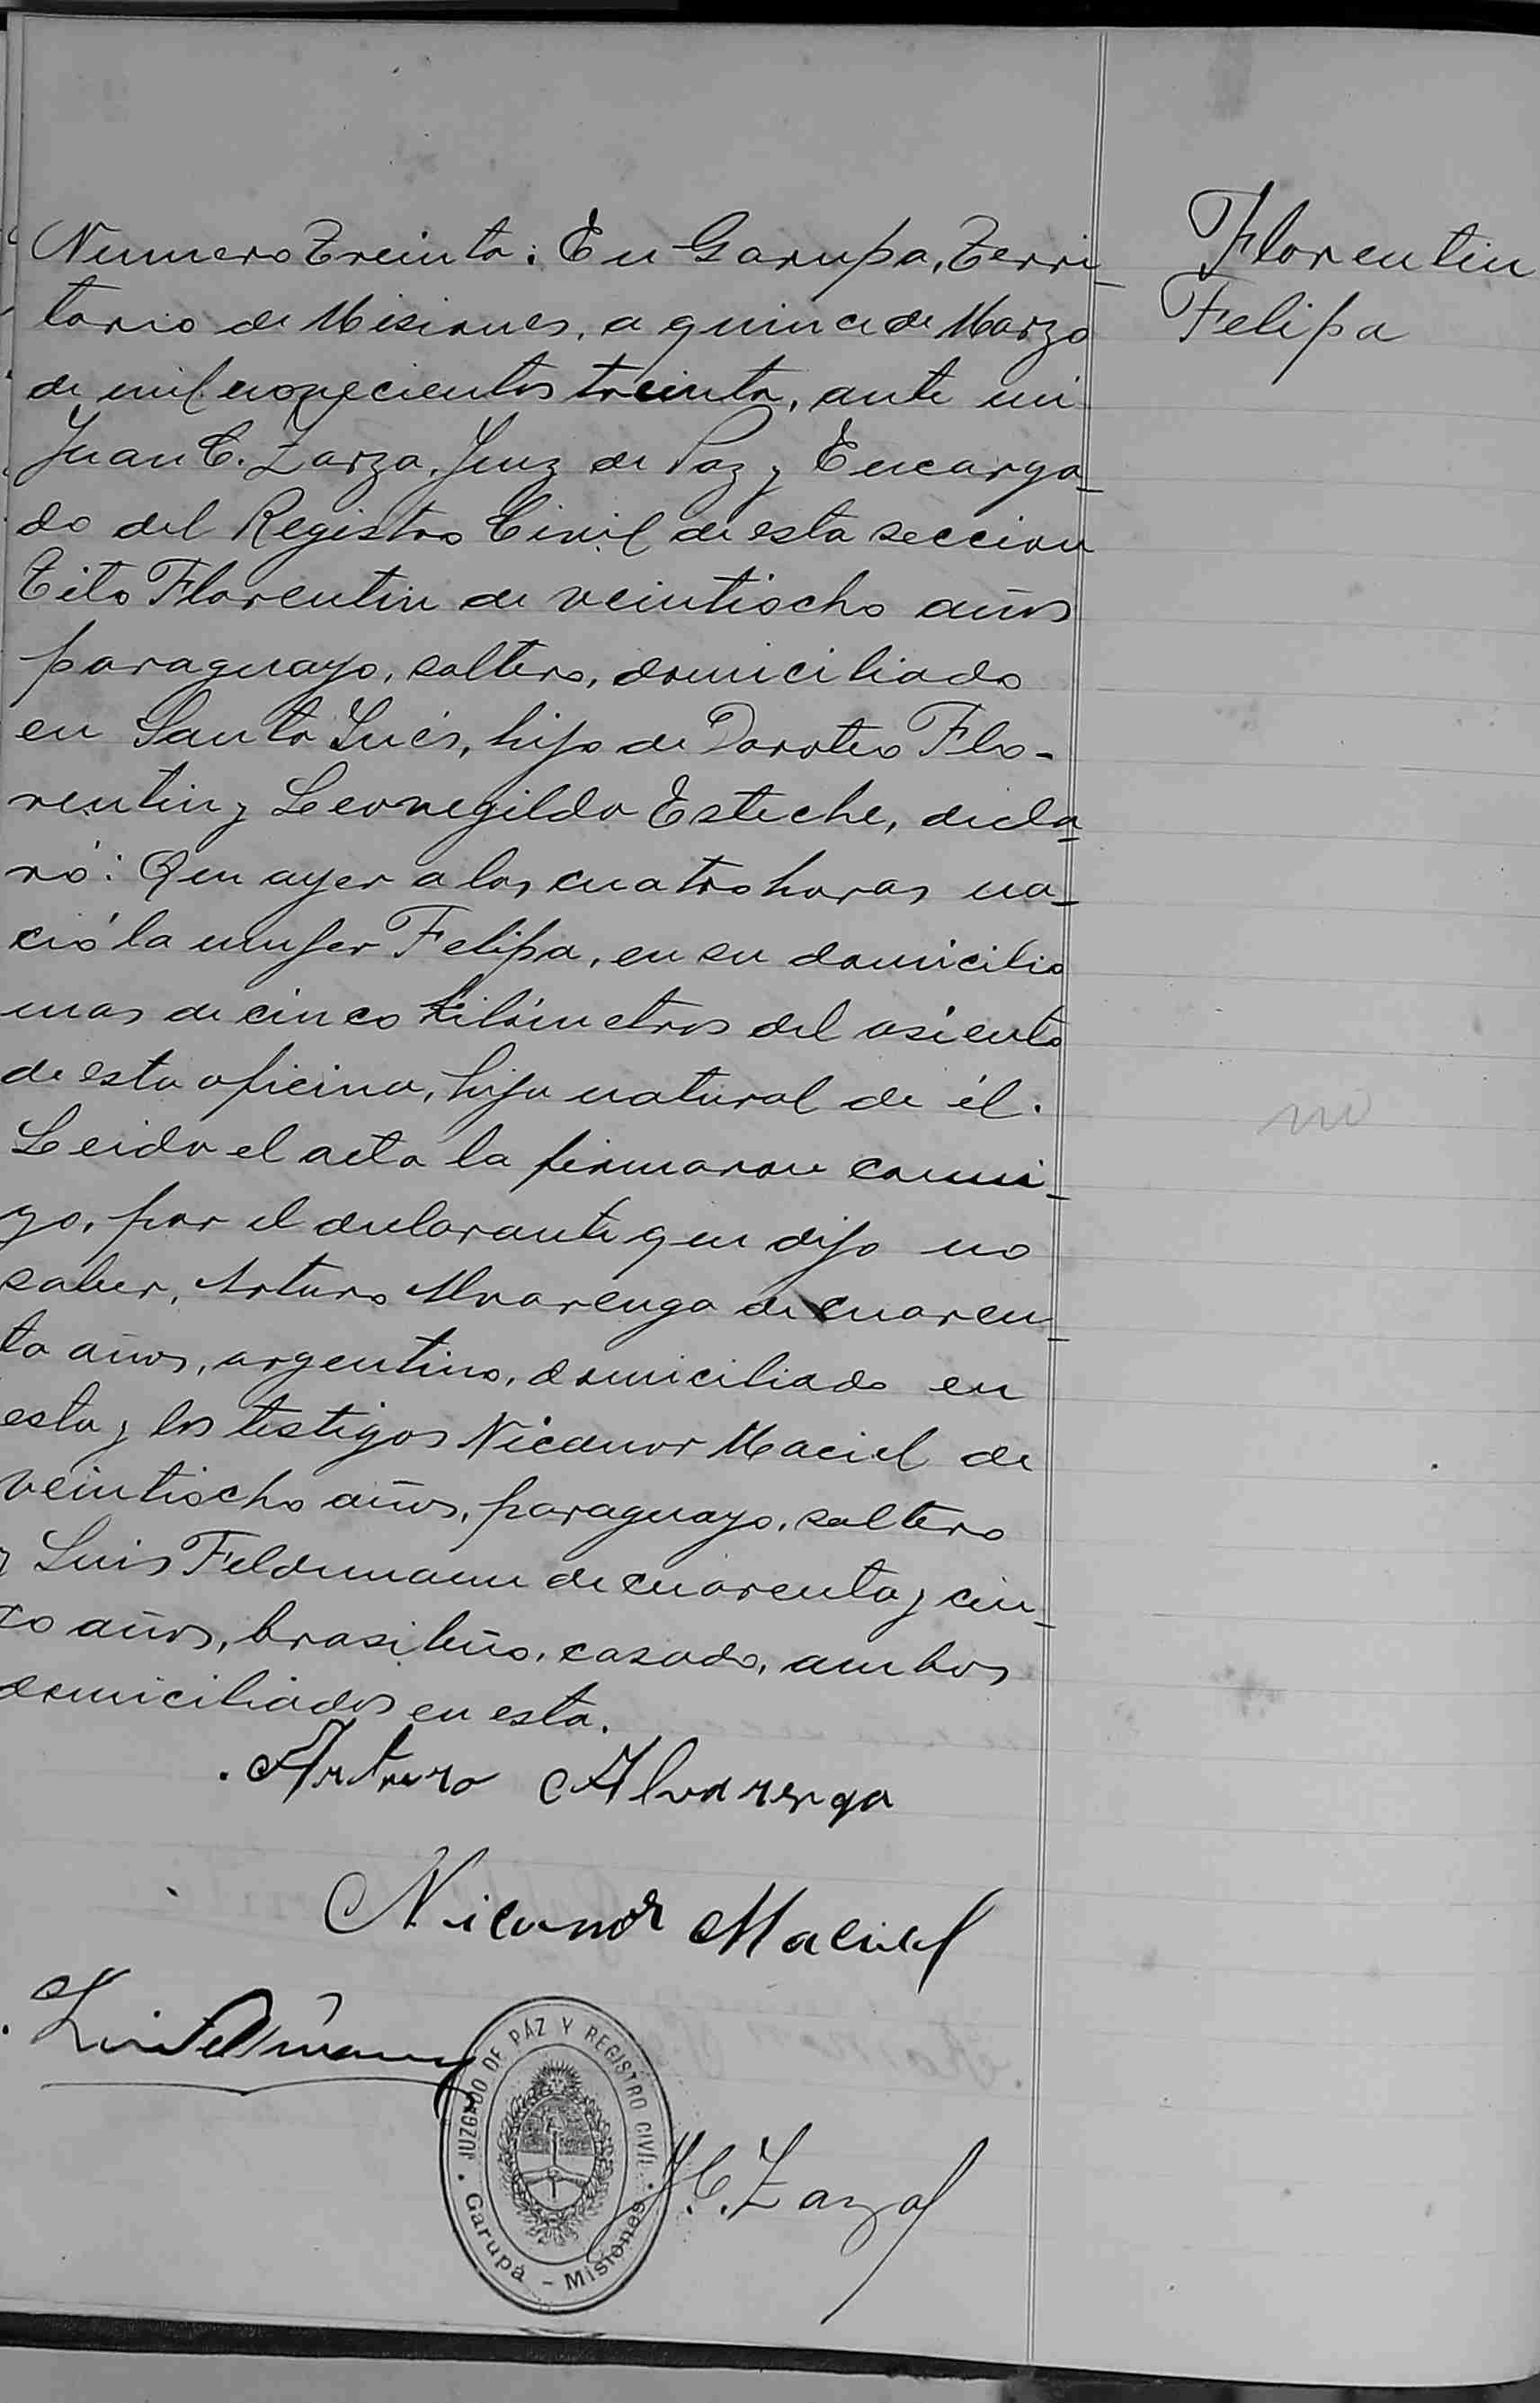 Florentin
Felipa
Numero Treinta: En Garupa, Terri-
torio de Misiones, a quince de Marzo
de mil novecientos treinta, ante mi
Juan C. Zarza, Juez de Paz y Encarga-
do del Registro Civil de esta seccion
Tito Florentin de veintiocho años
paraguayo, soltero, domiciliado
en Santa Inés, hijo de Doroteo Flo-
rentin y Leovegilda Esteche, decla-
ró: Que ayer a las cuatro horas na-
ció la mujer Felipa, en su domicilio
mas de cinco kilómetros del asiento
de esta oficina, hija natural de él.
Leida el acta la firmaron conmi-
go, por el declarante que dijo no
saber, Arturo Alvarenga de cuaren-
ta años, argentino, domiciliado en
esta y los testigos Nicanor Maciel de
veintiocho años, paraguayo, soltero
y Luis Feldmann de cuarenta y cin-
co años, brasileño, casado, ambos
domiciliados en esta.
Arturo Alvarenga
Nicanor Maciel
Luis Feldmann
JUZGADO DE PÁZ Y REGISTRO CIVIL
Garupá - Misiones
J. C. Zarza